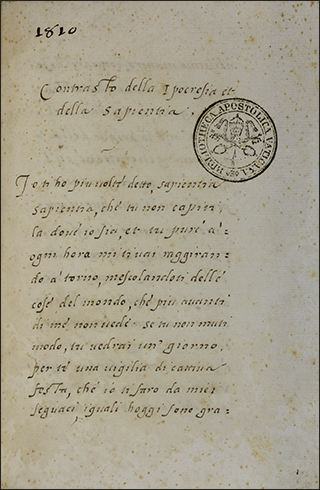 1810
Contrasto della Ipocresia et
della Sapientia.
BIBLIOTHECA APOSTOLICA VATICANA
Io ti ho piu volte detto, sapientia
sapientia, che tu non capiti
la dove io sia, et tu pure a'
ogni hora mi ti vai raggiran=
do a' torno, mescolandoti delle
cose del mondo, che piu avanti
di me non vede. se tu non muti
modo, tu vedrai un' giorno,
per te una vigilia di cattiva
festa, che io ti faro da miei
seguaci, i quali hoggi sono gra=